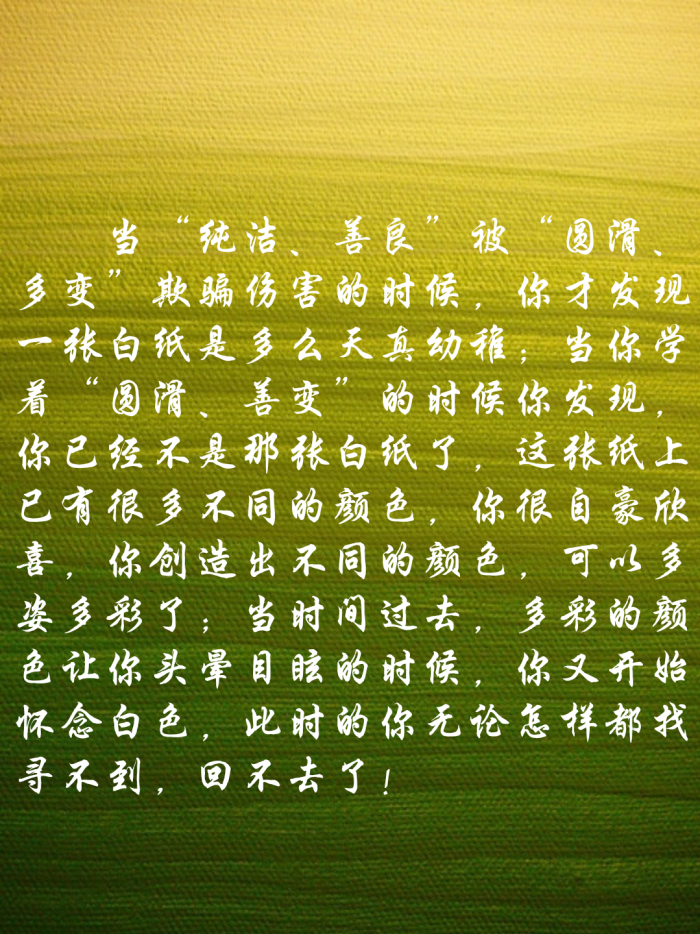 当“纯洁、善良”被“圆滑、
多变”欺骗伤害的时候，你才发现
一张白纸是多么天真幼稚；当你学
着“圆滑、善变”的时候你发现，
你已经不是那张白纸了，这张纸上
已有很多不同的颜色，你很自豪欣
喜，你创造出不同的颜色，可以多
姿多彩了；当时间过去，多彩的颜
色让你头晕目眩的时候，你又开始
怀念白色，此时的你无论怎样都找
寻不到，回不去了！